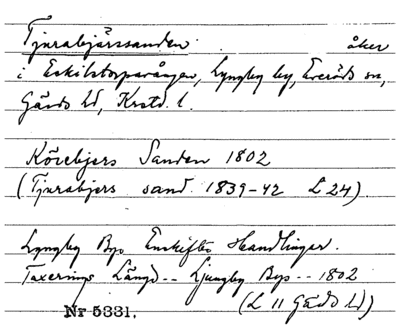 Tjurabjärssanden. åker
i Eskilstorpavången, Lyngby by, Everöds sn,
Gärds hd, Krstd. l.
Körebjers Sanden 1802
(Tjurabjers sand. 1839-42 L 24).
Lyngby Bys Enskiftes Handlingar.
Taxerings Längd -- Ljungby Bys -- 1802
Nr 5331. (L 11 Gärds hd)